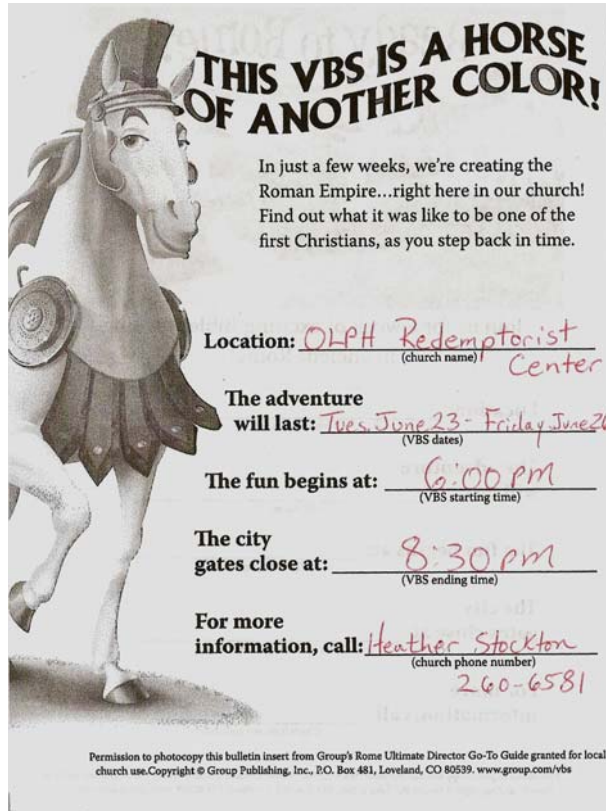 THIS VBS IS A HORSE
OF ANOTHER COLOR!
In just a few weeks, we're creating the
Roman Empire...right here in our church!
Find out what it was like to be one of the
first Christians, as you step back in time.
Location: OLPH Redemptorist
(church name) Center
The adventure
will last: Tues. June 23 - Friday June 26
(VBS dates)
The fun begins at: 6:00 PM
(VBS starting time)
The city
gates close at: 8:30 PM
(VBS ending time)
For more
information, call: Heather Stockton
(church phone number)
260-6581
Permission to photocopy this bulletin insert from Group's Rome Ultimate Director Go-To Guide granted for local
church use.Copyright © Group Publishing, Inc., P.O. Box 481, Loveland, CO 80539. www.group.com/vbs